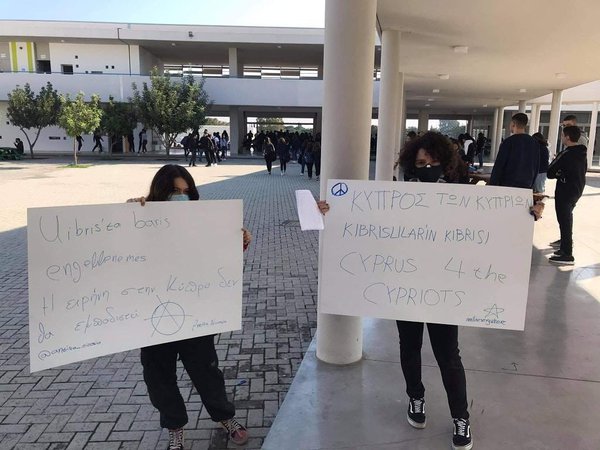 Kıbrıs'ta barış
engellenemez
Η ειρήνη στην Κύπρο δεν
θα εμποδιστεί
ΚΥΠΡΟΣ ΤΩΝ ΚΥΠΡΙΩΝ
KIBRISLILARIN KIBRISI
CYPRUS 4 the
CYPRIOTS